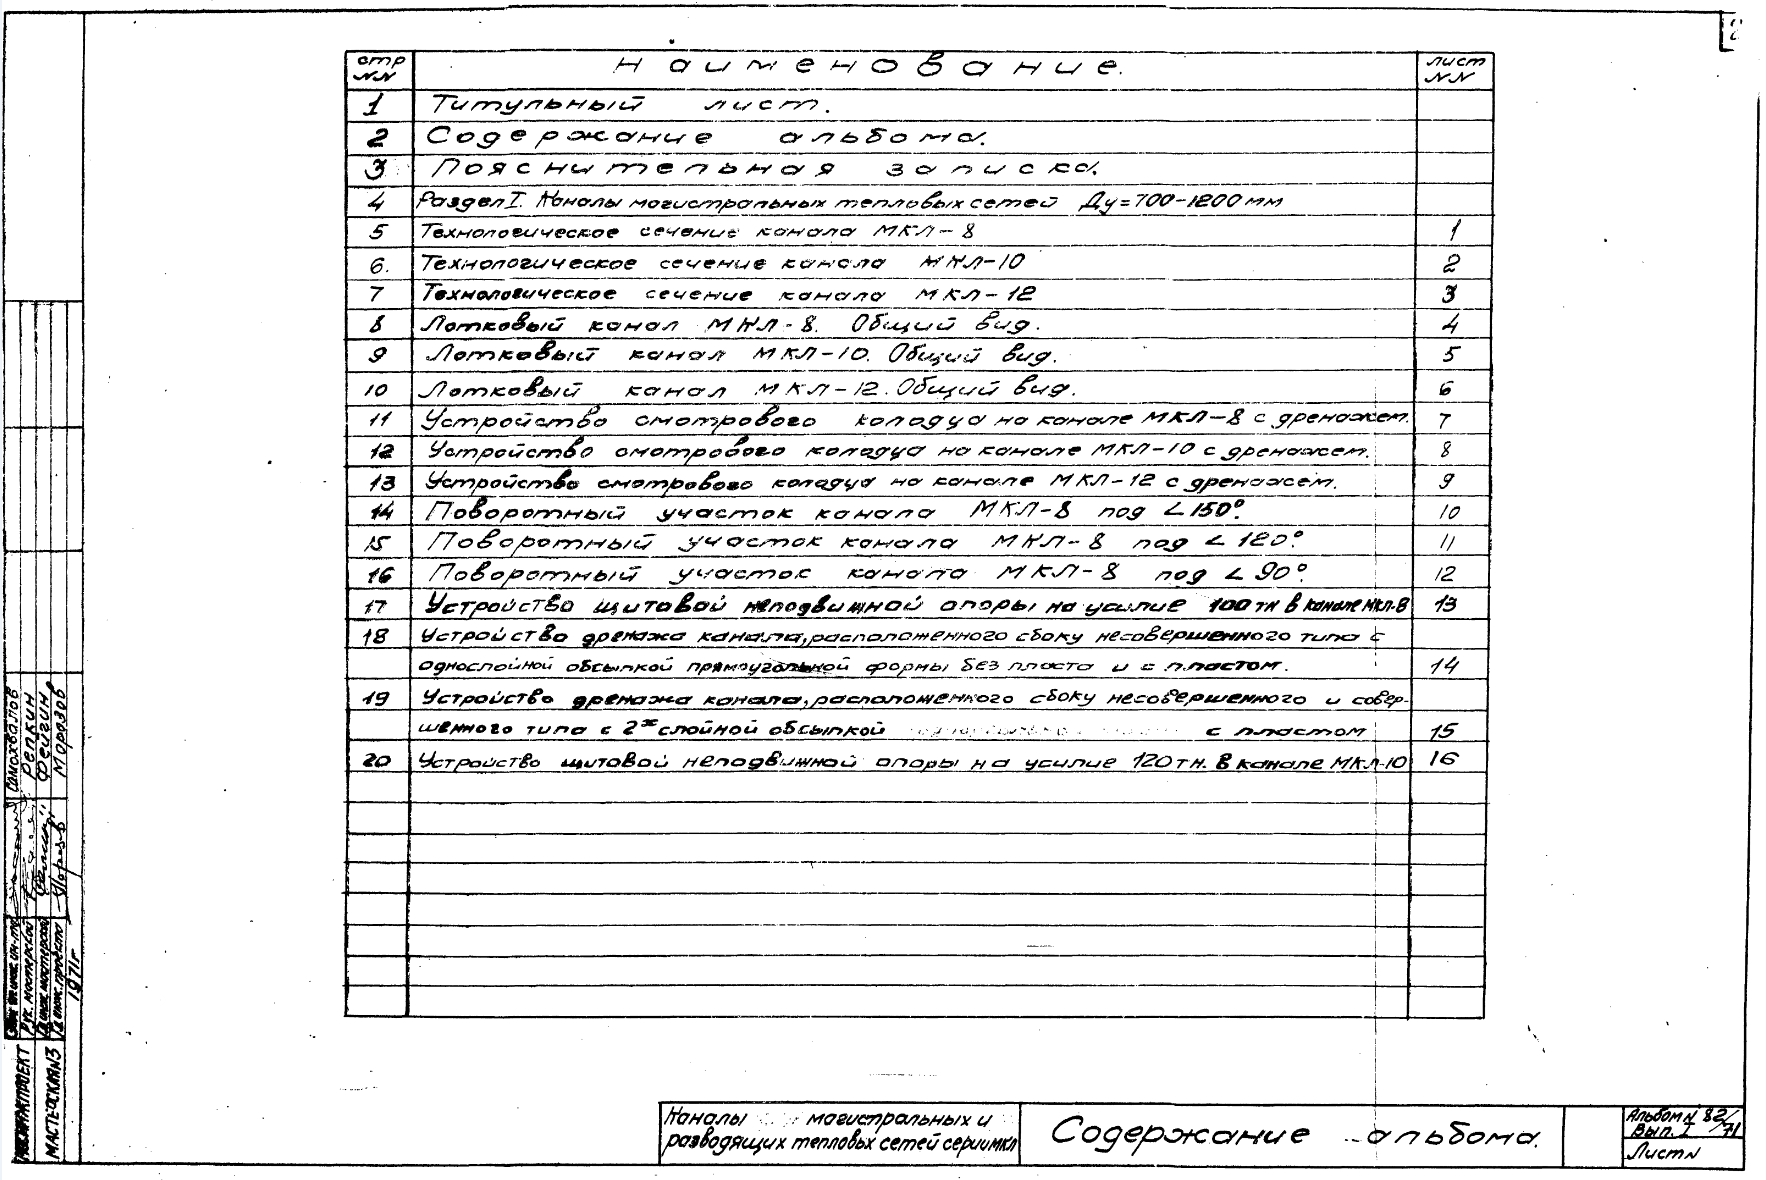 стр Наименование. лист
NN NN
1 Титульный лист.
2 Содержание альбома.
3 Пояснительная записка.
4 Раздел I. Каналы магистральных тепловых сетей Ду=700-1200мм
5 Технологическое сечение канала МКЛ-8 1
6. Технологическое сечение канала МКЛ-10 2
7 Технологическое сечение канала МКЛ-12 3
8 Лотковый канал МКЛ-8. Общий вид. 4
9 Лотковый канал МКЛ-10. Общий вид. 5
10 Лотковый канал МКЛ-12. Общий вид. 6
11 Устройство смотрового колодца на канале МКЛ-8 с дренажем. 7
12 Устройство смотрового колодца на канале МКЛ-10 с дренажем. 8
13 Устройство смотрового колодца на канале МКЛ-12 с дренажем. 9
14 Поворотный участок канала МКЛ-8 под ∠150°. 10
15 Поворотный участок канала МКЛ-8 под ∠120°. 11
16 Поворотный участок канала МКЛ-8 под ∠90°. 12
17 Устройство щитовой неподвижной опоры на усилие 100тн в канале МКЛ-8 13
18 Устройство дренажа канала, расположенного сбоку несовершенного типа с
однослойной обсыпкой прямоугольной формы без пласта и с пластом. 14
19 Устройство дренажа канала, расположенного сбоку несовершенного и совер-
шенного типа с 2х слойной обсыпкой с пластом 15
20 Устройство щитовой неподвижной опоры на усилие 120тн. в канале МКЛ-10 16
Самохвалов
Репкин
Фейгин
Морозов
Рук. мастерской
Гл. инж. мастерской
Гл. инж. проекта
1971г
МОСИНЖПРОЕКТ
МАСТЕРСКАЯ N3
Каналы магистральных и
разводящих тепловых сетей серии мкл
Содержание альбома.
Альбом N 82/71
Вып. I
Лист N